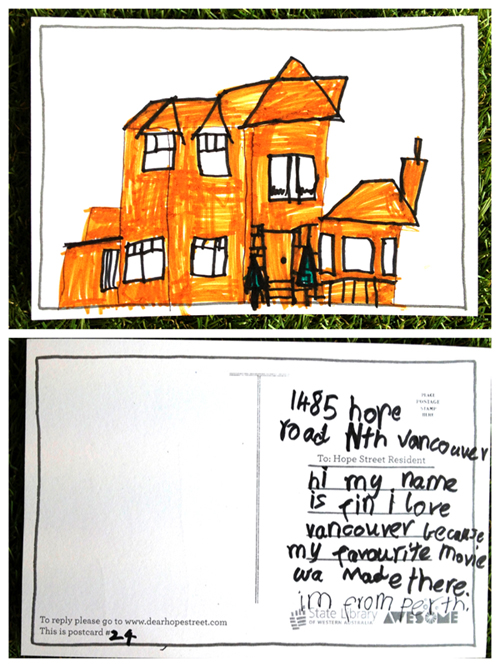 1485 hope
road Nth vancouver
PLACE
POSTAGE
STAMP
HERE
To: Hope Street Resident
hi my name
is fin i love
vancouver because
my favourite movie
wa made there.
im from perth.
State Library
OF WESTERN AUSTRALIA
AWESOME
To reply please go to www.dearhopestreet.com
This is postcard #24